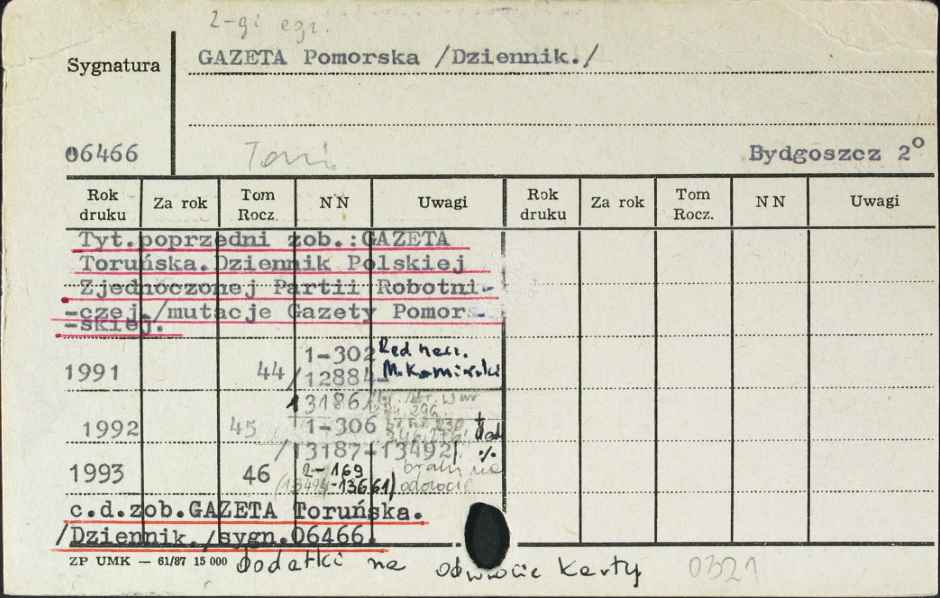 2-gi egz.
Sygnatura
GAZETA Pomorska /Dziennik./
06466
Bydgoszcz 2°
Rok druku Za rok Tom Rocz. NN Uwagi Rok druku Za rok Tom Rocz. NN Uwagi
Tyt.poprzedni zob.:GAZETA
Toruńska.Dziennik Polskiej
Zjednoczonej Partii Robotni-
-czej./mutacje Gazety Pomor-
-skiej.
1991 44 1-302 Red nacz.
/12884- M. Kamiński
13186/
1992 45 1-306
/13187-13492/
1993 46 2-169 braki na
(13494-13661) odwrocie
c.d.zob.GAZETA Toruńska.
/Dziennik./sygn.06466.
ZP UMK — 61/87 15 000 dodatki na odwrocie karty 0321